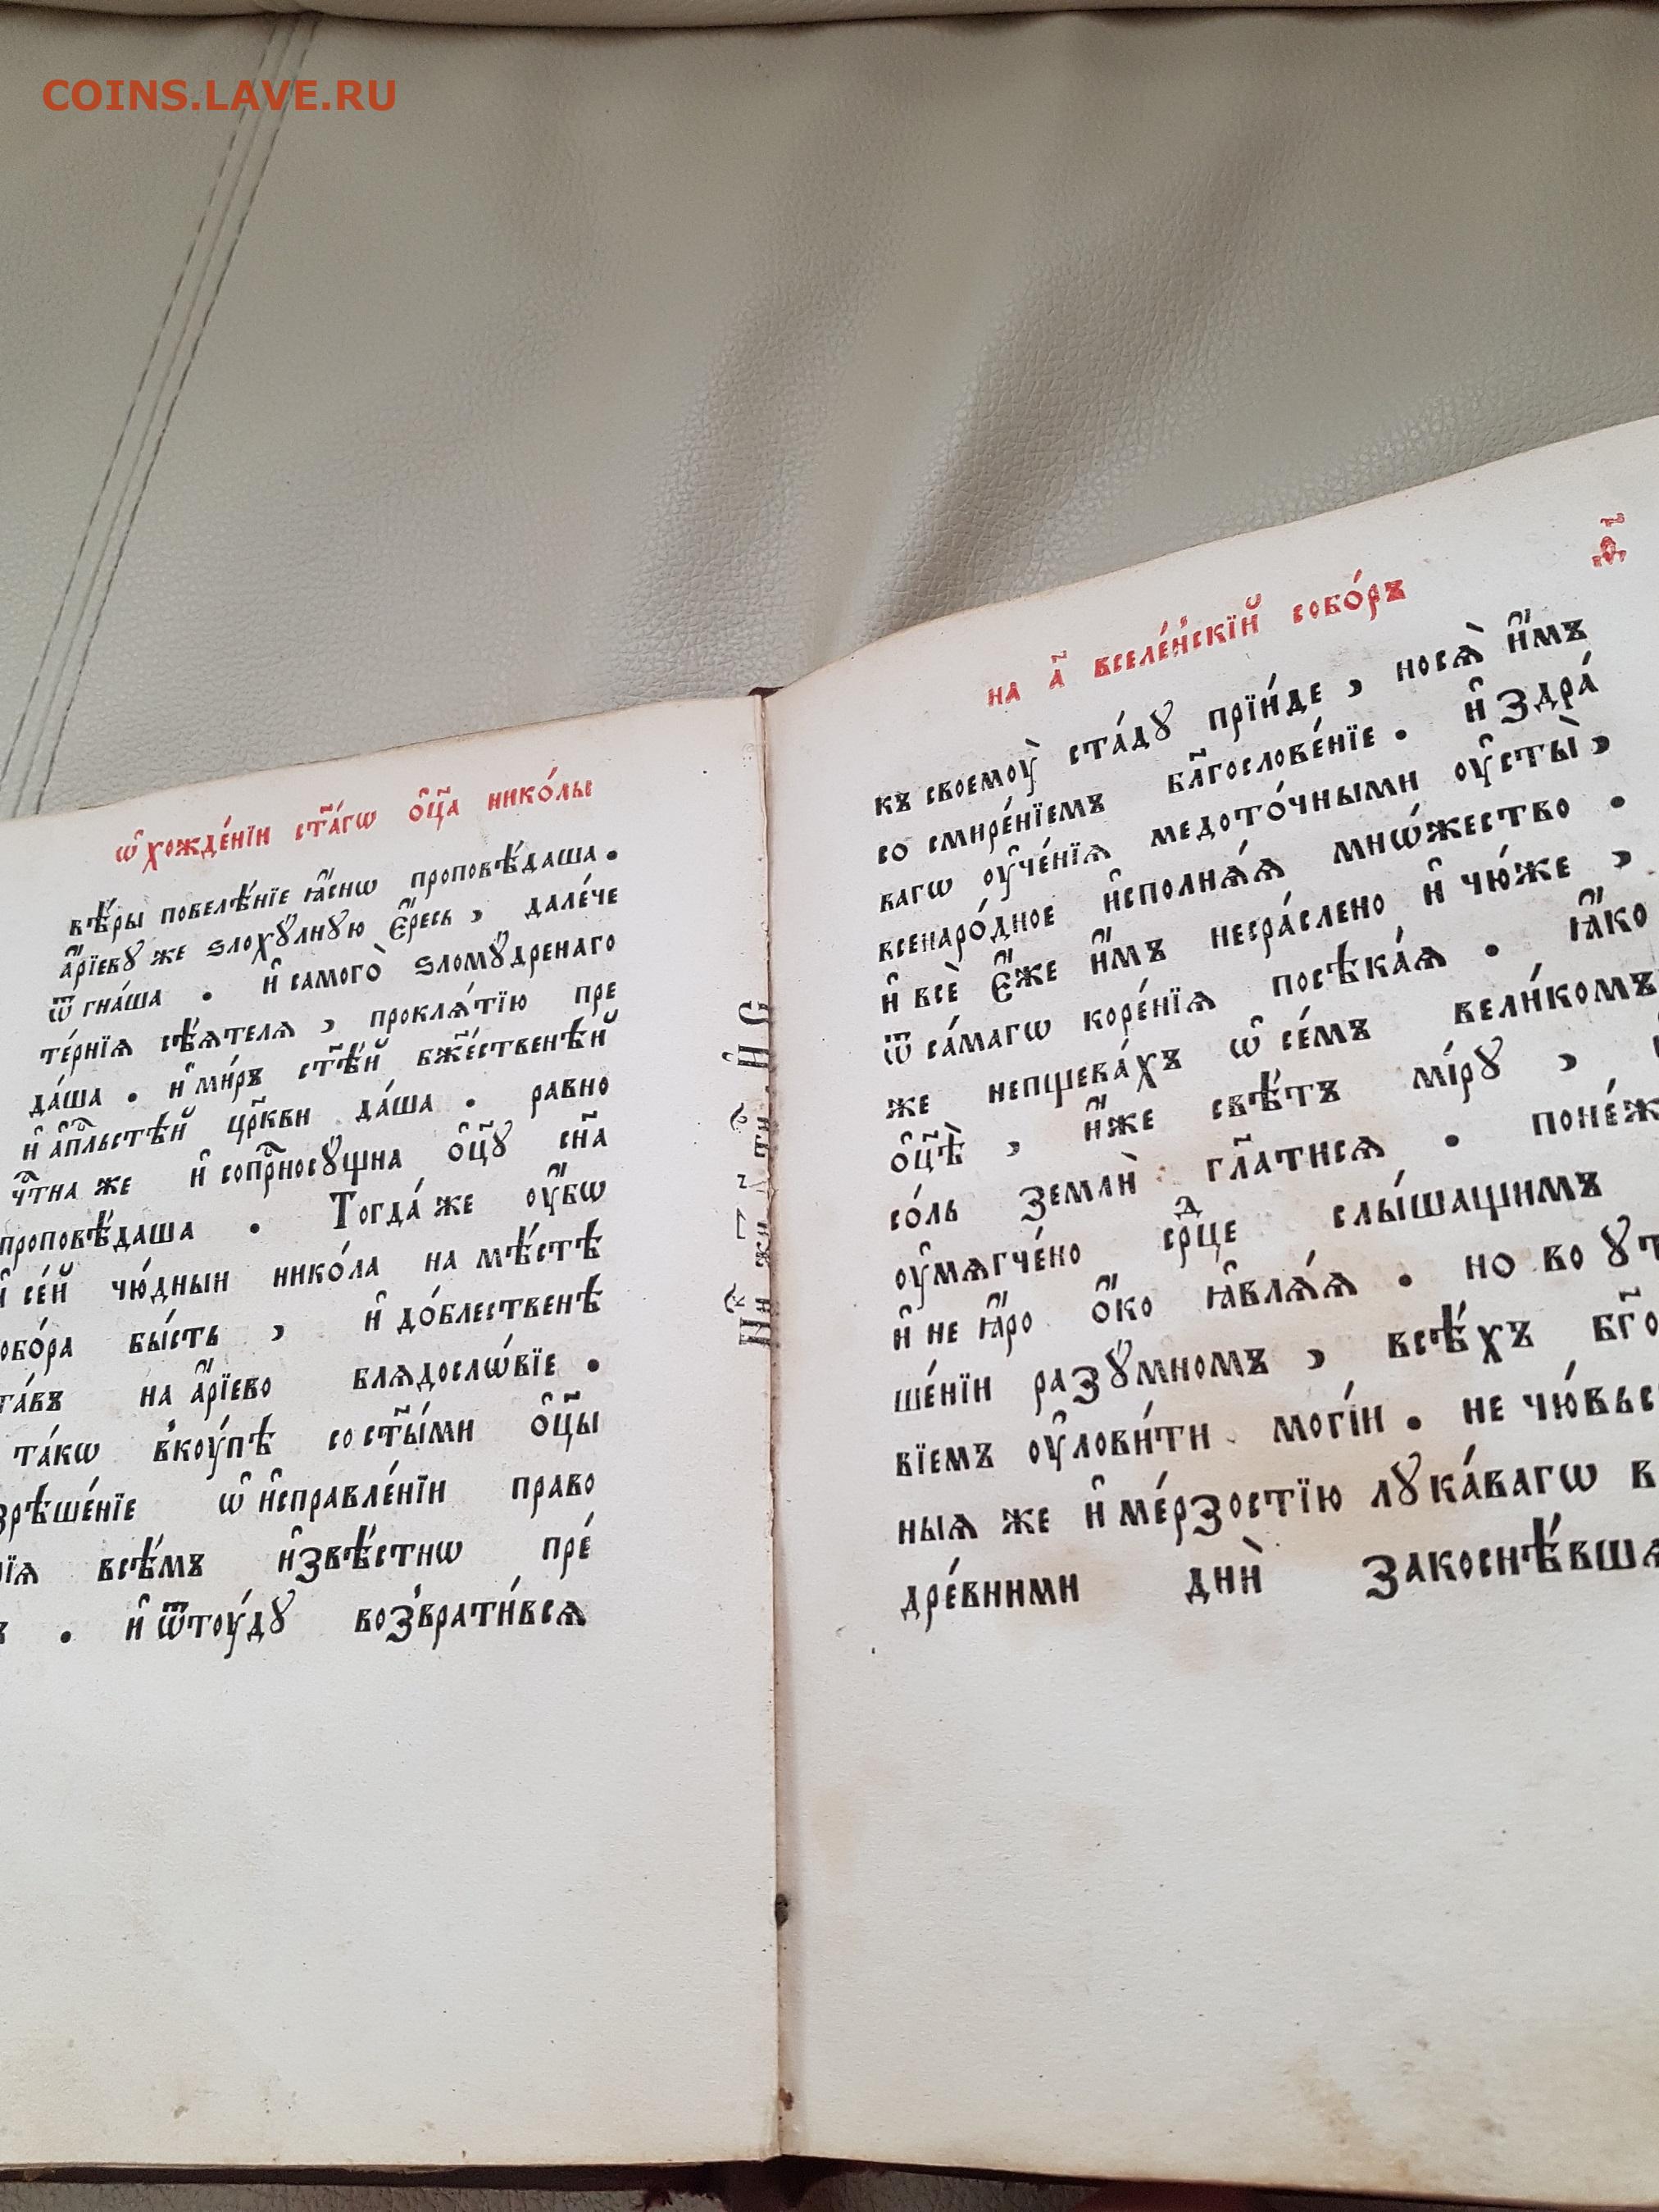 COINS.LAVE.RU
ѡ҆ хожде́нїи ст҃а́гѡ ѻ҆ц҃а нико́лы
вѣ́ры повелѣ́нїе ꙗ҆́снѡ проповѣ́даша .
а҆́рїевꙋ же ѕлохꙋ́лнꙋю є҆́ресь , дале́че
ѿ гна́ша . и҆ самого̀ ѕломꙋ́дренаго
те́рнїѧ сѣ́ѧтелѧ , проклѧ́тїю пре
да́ша . и҆ ми́ръ ст҃ѣ́й бж҃е́ственѣй
и҆ а҆пⷭ҇льстѣ́й цр҃кви да́ша . равно
чⷭ҇тна же и҆ сопрⷭ҇носꙋ́щна ѻ҆ц҃ꙋ̀ сн҃а
проповѣ́даша . Тогда́ же ᲂу҆́бѡ
и҆ се́й чю́дныи нико́ла на мѣ́стѣ
обо́ра бы́сть , и҆ до́блественѣ
та́въ на а҆́рїево блѧдосло́вїе .
та́кѡ вкꙋ́пѣ со ст҃ы́ми ѻ҆ц҃ы
зрѣше́нїе ѡ҆ и҆справле́нїи право
їѧ всѣ́мъ и҆звѣ́стнѡ пре́
. и҆ ѿтᲂу́дꙋ возврати́всѧ
на а҃ вселе́нскїй собо́ръ
къ своемᲂу̀ ста́дꙋ прїи́де , носѧ̀ и҆́мъ
со смире́нїемъ бл҃гослове́нїе . и҆ здра́
вагѡ ᲂу҆че́нїѧ медото́чными ᲂу҆сты̀ ,
всенаро́дное и҆сполнѧ́ѧ мно́жество .
и҆ всѐ є҆́же и҆́мъ несра́слено и҆ чю́же ,
ѿ са́магѡ коре́нїѧ посѣка́ѧ . ꙗ҆́ко
же непщева́хъ ѡ҆ се́мъ вели́комъ
ѻ҆ц҃ѣ̀ , и҆́же свѣ́тъ мі́рꙋ ,
со́ль землѝ гл҃атисѧ . поне́ж
ᲂу҆мѧгче́но срⷣце слы́шащимъ
и҆ не ꙗ҆́ро ѻ҆́ко ꙗ҆влѧ́ѧ . но во ᲂу҆т
ше́нїи разꙋ́мномъ , всѣ́хъ бг҃о
вїемъ ᲂу҆лови́ти могі́и . не чю́вьс
ныѧ же и҆ ме́рзостїю лꙋка́вагѡ в
дре́вними днѝ закоснѣ́вша